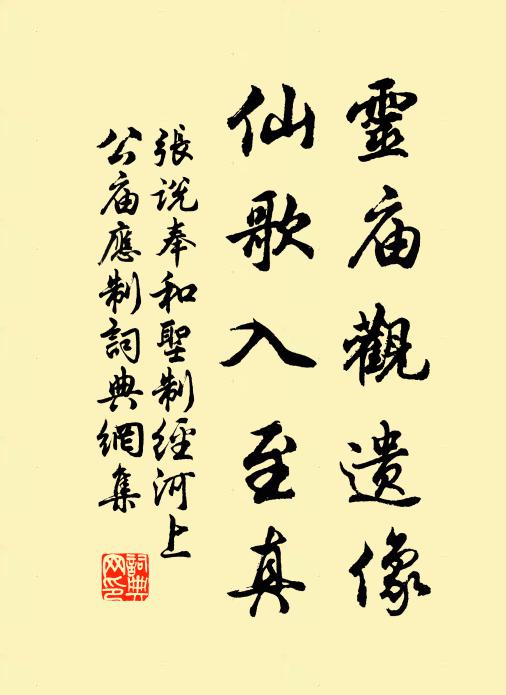 靈庙觀遺像
仙歌入至真
張说奉和聖制經河上
公庙應制詞典網集
詞典
网印